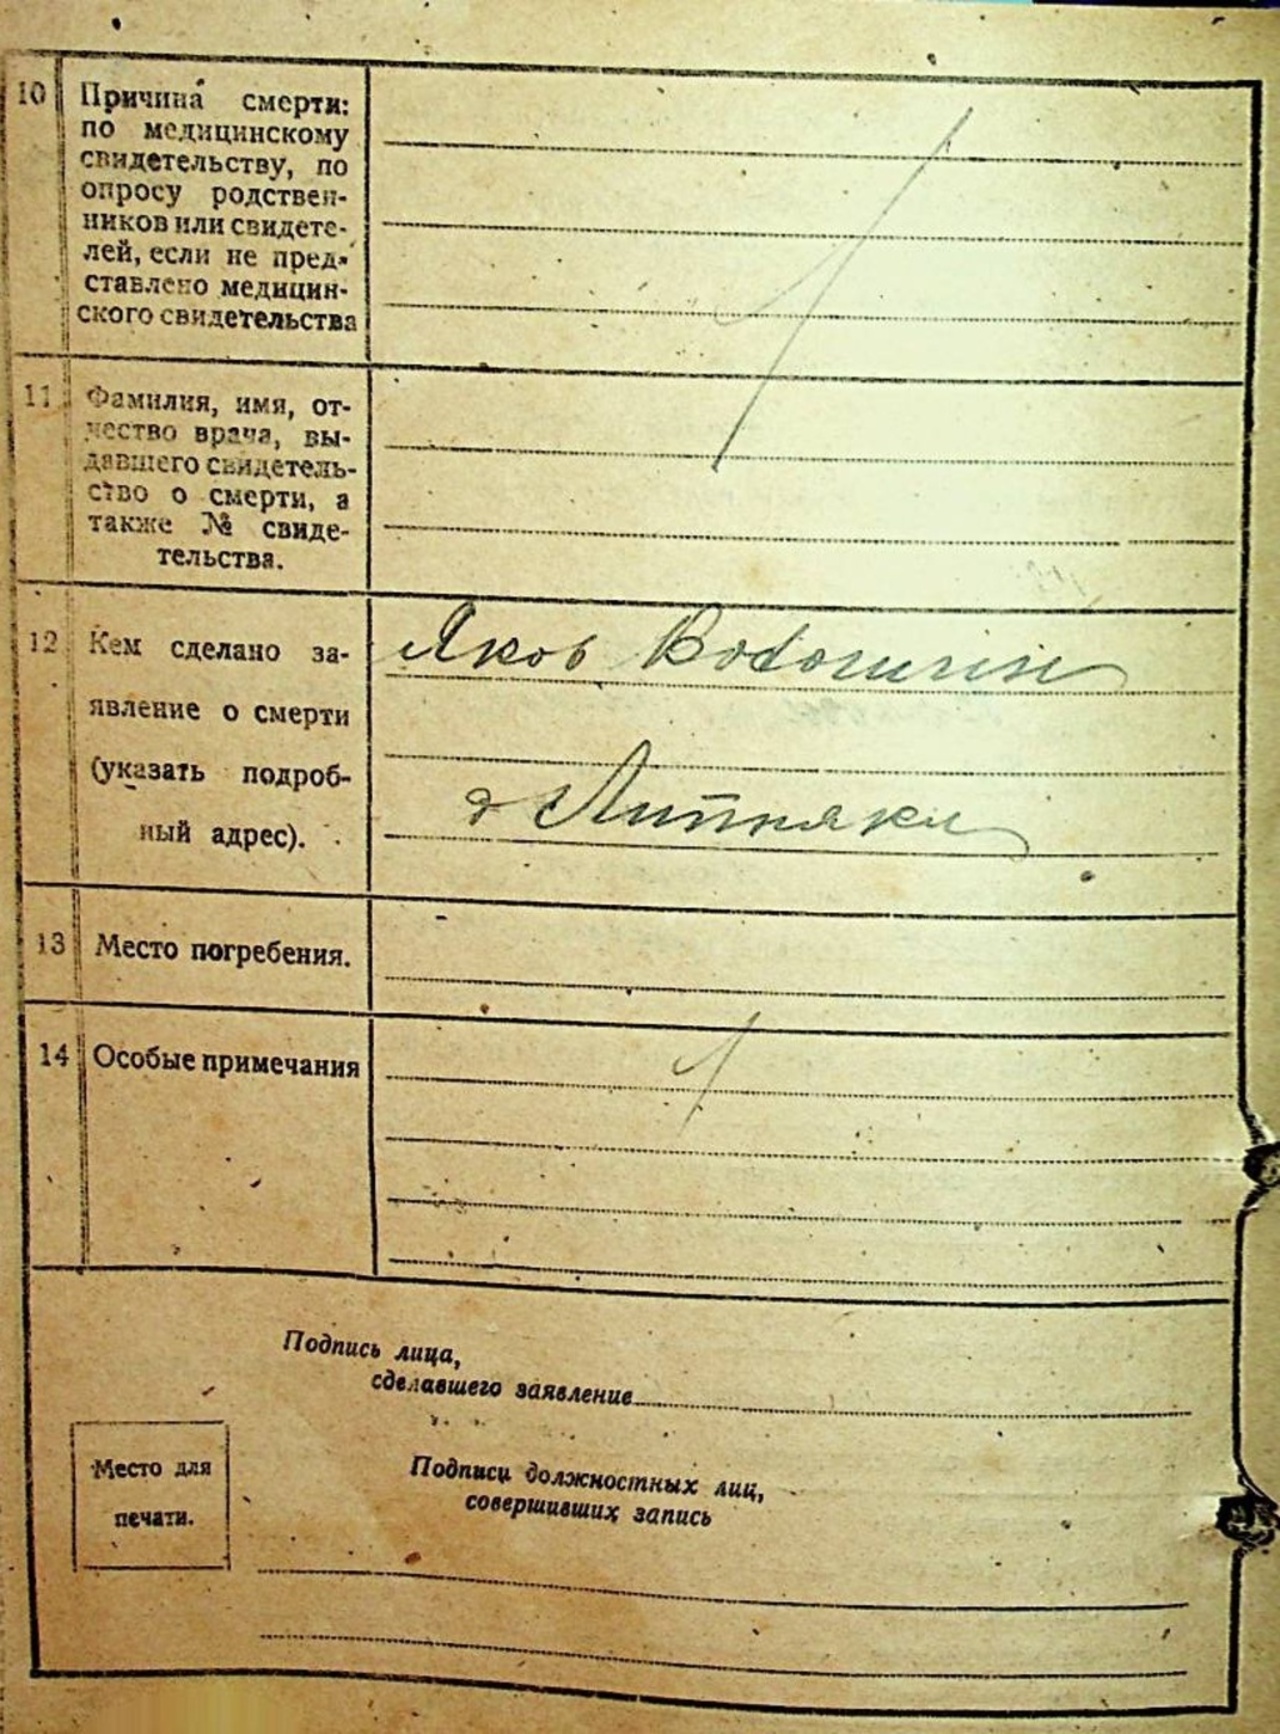 10 Причина смерти:
по медицинскому
свидетельству, по
опросу родствен-
ников или свидете-
лей, если не пред-
ставлено медицин-
ского свидетельства
11 Фамилия, имя, от-
чество врача, вы-
давшего свидетель-
ство о смерти, а
также № свиде-
тельства.
12 Кем сделано за-
явление о смерти
(указать подроб-
ный адрес).
Яков
д Липняки
13 Место погребения.
14 Особые примечания
Подпись лица,
сделавшего заявление
Место для
печати.
Подписи должностных лиц,
совершивших запись